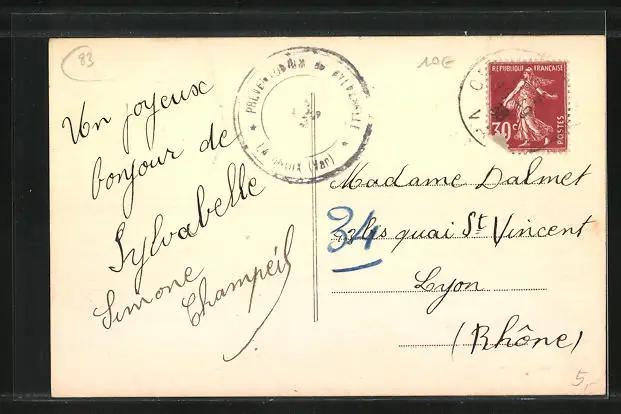 83
10€
Un joyeux
bonjour de
Sylvabelle
Simone
Champeil
PREVENTORIUM DE SYLVABELLE
LA CROIX (Var)
REPUBLIQUE FRANÇAISE
30c
POSTES
Madame Dalmet
34
quai St Vincent
Lyon
(Rhône)
5,-